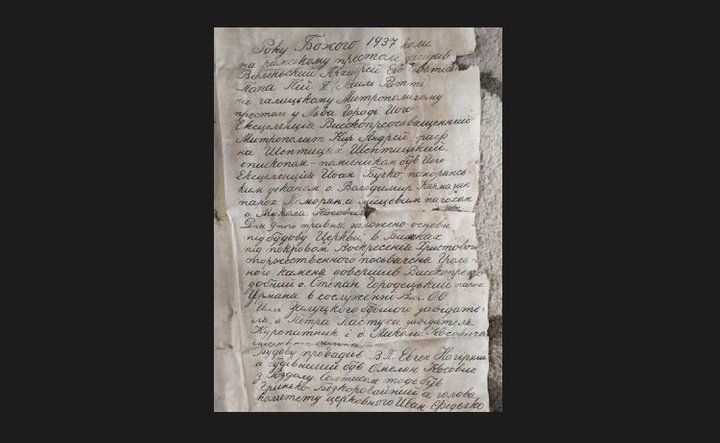 Року Божого 1937 коли
на римському престолі засідав
Вселенський Архиєрей Єго Свято
Папа Пій XI Ахиль Ратті
на галицькому Митрополичому
престолі у Льва Городі Його
Ексцеленція Високопреосвященний
Митрополит Кир Андрей граф
на Шептицях Шептицкий
епископом-помічником був Його
Ексцеленція Йоан Бучко поморянсь
ким деканом о. Володимир Кармазин
парох Поморян, а місцевим парохом
о. Микола Косович
Дня 9 того травня заложено основи
під будову Церкви в Бижках
під покровом Воскресення Христового
торжественного посьвячення Уголь-
ного камена довершив Високопрепо
добний о. Степан Городецький парох
Урмана в сослуженні Вс. ОО
Залуцкого сотрудника завідате-
ля, о. Петра Пастуха завідателя
Куропатник і о. Миколи Косовича
Будову провадив В.П. Евген Нагірний
а будівничий був Омелян Косовик
з Поздолу. Солтисом тоді був
Гринько Безкоровайний а голова
комітету церковного Иван